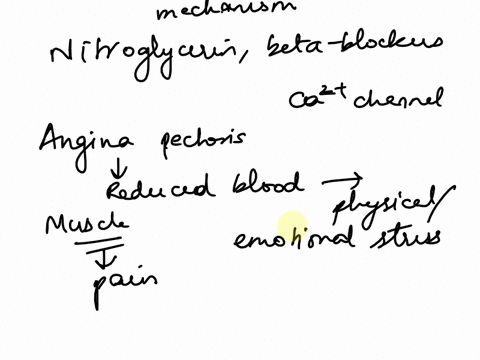 mechanism
Nitroglycerin, beta-blockers
Ca2+ channel
Angina pectosis
Reduced blood → physical/
Muscle
emotional stress
pain